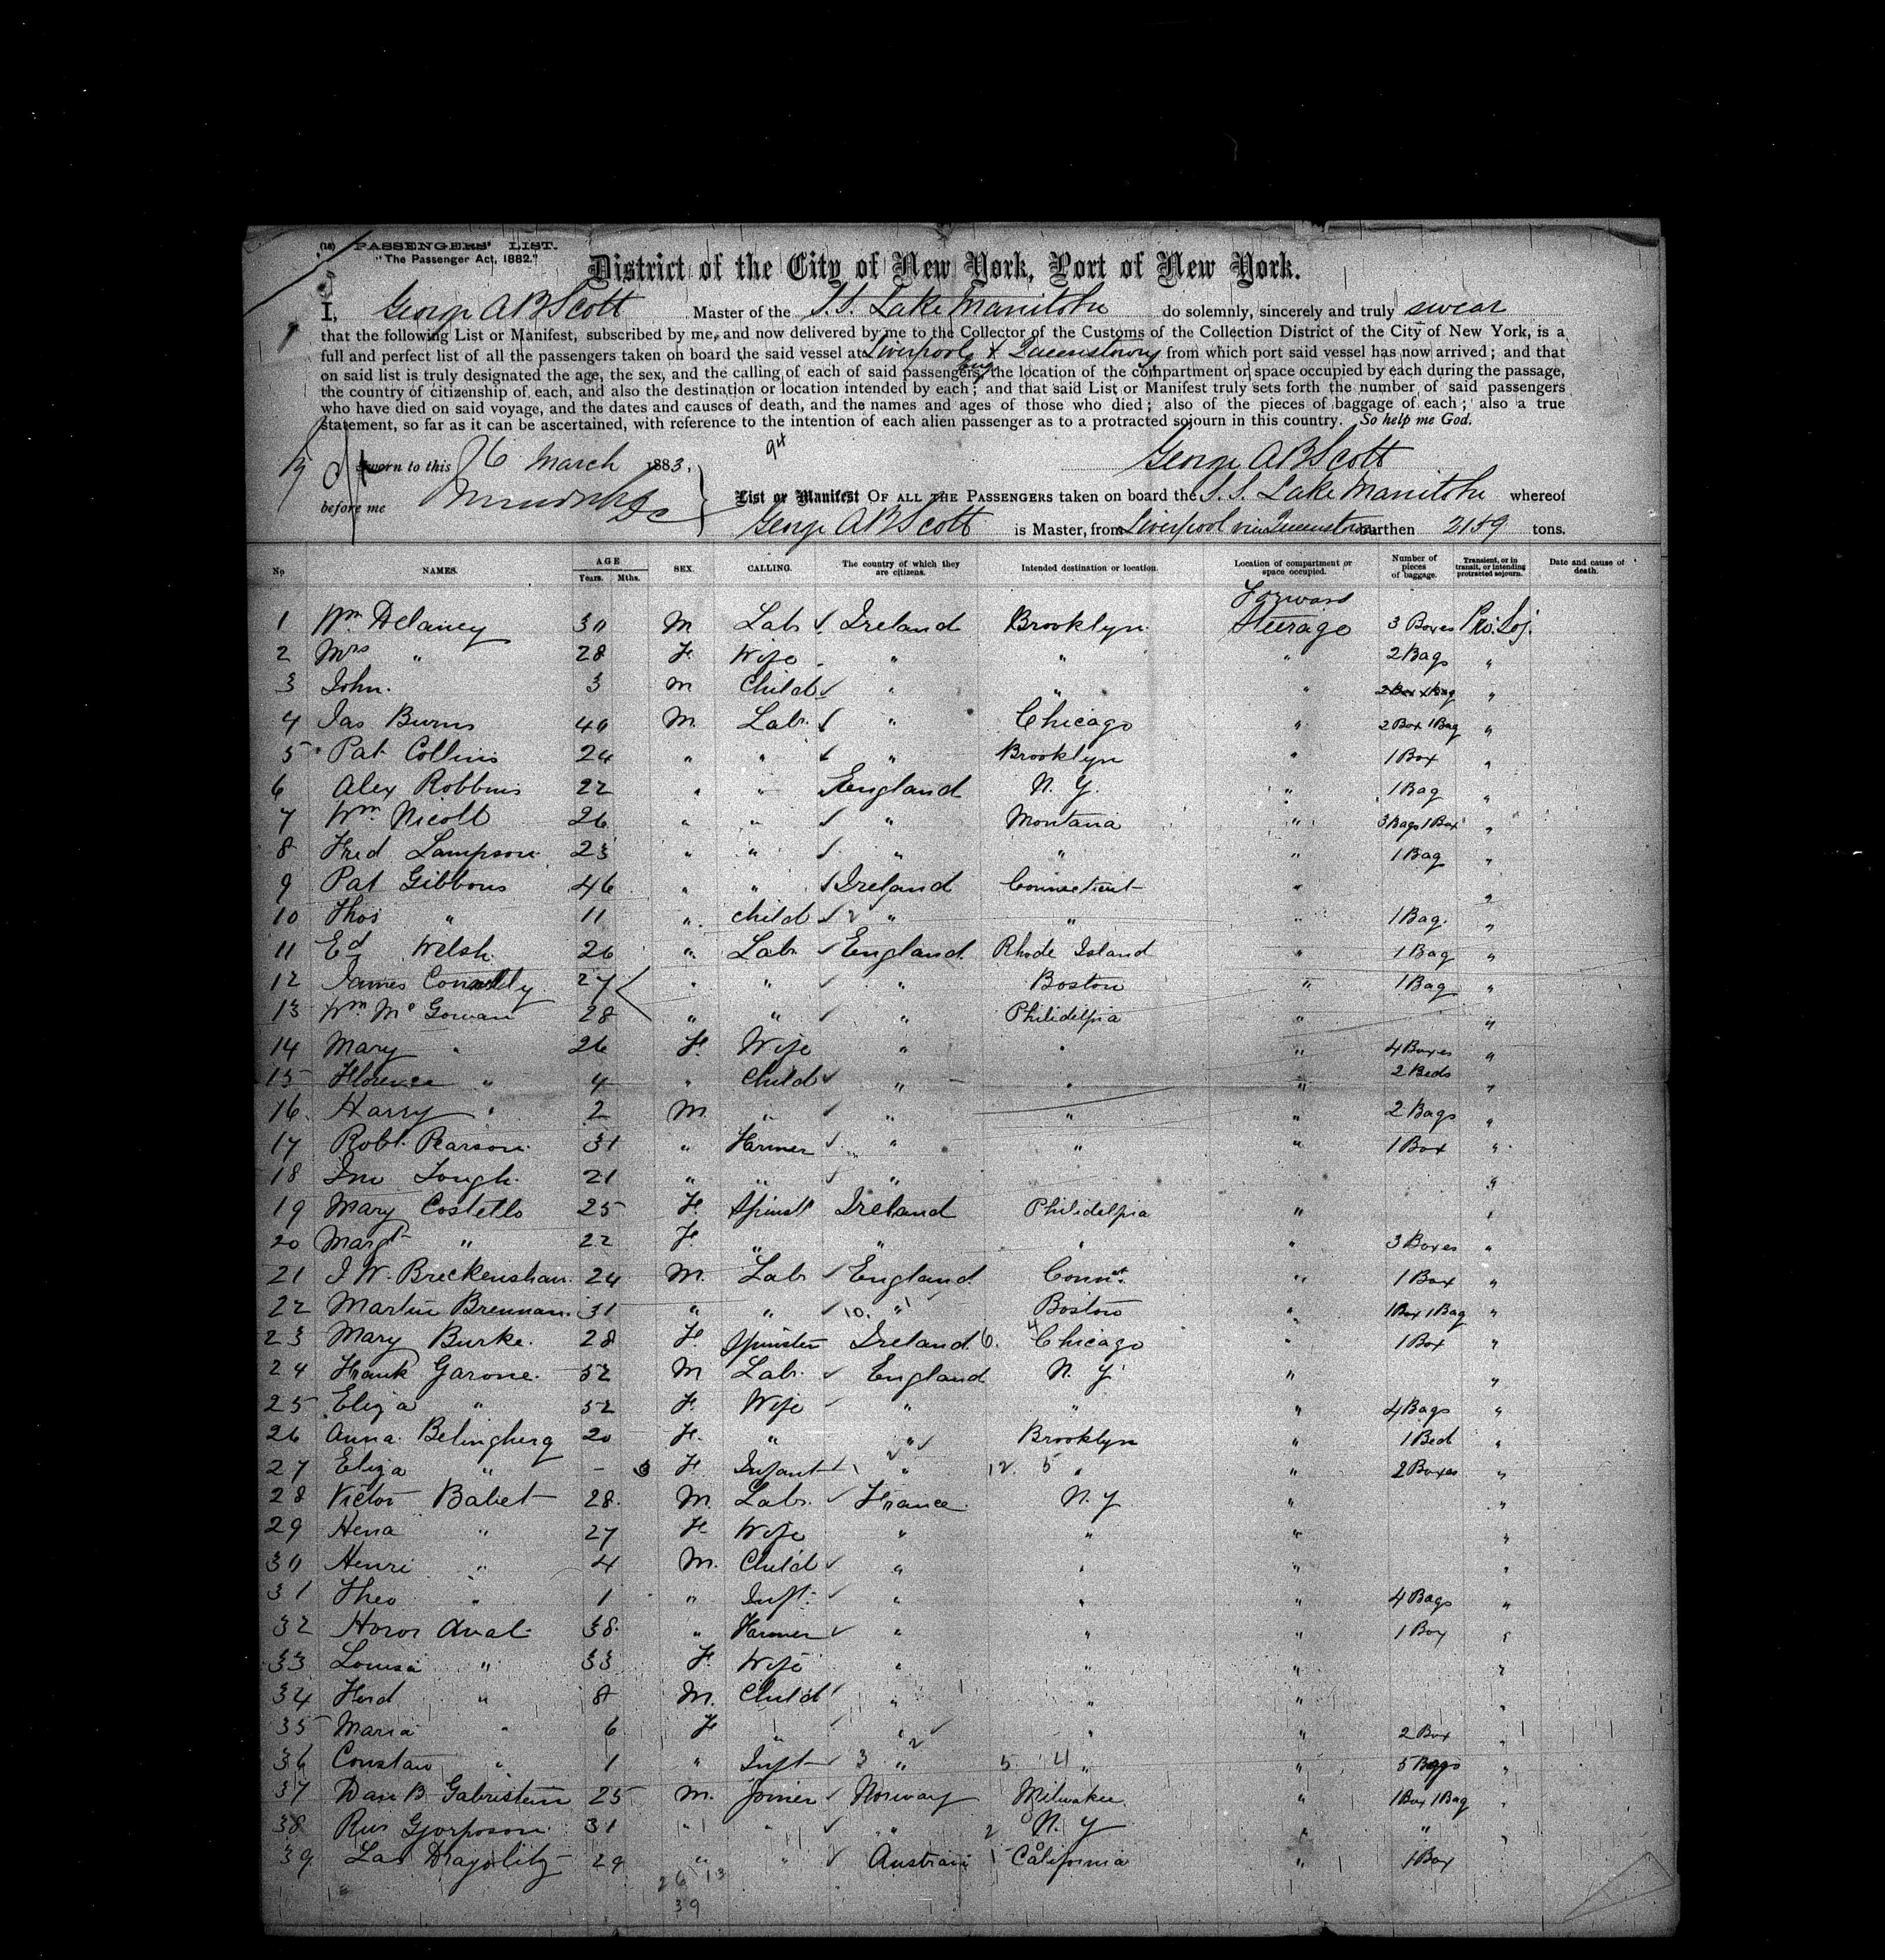 (18) PASSENGERS' LIST.
"The Passenger Act, 1882."
District of the City of New York, Port of New York.
I, George A B Scott Master of the S.S. Lake Manitoba do solemnly, sincerely and truly swear
that the following List or Manifest, subscribed by me, and now delivered by me to the Collector of the Customs of the Collection District of the City of New York, is a
full and perfect list of all the passengers taken on board the said vessel at Liverpool & Queenstown from which port said vessel has now arrived; and that
on said list is truly designated the age, the sex, and the calling of each of said passengers, the location of the compartment or space occupied by each during the passage,
the country of citizenship of each, and also the destination or location intended by each; and that said List or Manifest truly sets forth the number of said passengers
who have died on said voyage, and the dates and causes of death, and the names and ages of those who died; also of the pieces of baggage of each; also a true
statement, so far as it can be ascertained, with reference to the intention of each alien passenger as to a protracted sojourn in this country. So help me God.
Sworn to this 26 March 1883, George A B Scott
before me
List or Manifest OF ALL THE PASSENGERS taken on board the S.S. Lake Manitoba whereof
George A B Scott is Master, from Liverpool via Queenstown burthen 2159 tons.
No NAMES. AGE Years. Mths. SEX. CALLING. The country of which they are citizens. Intended destination or location. Location of compartment or space occupied. Number of pieces of baggage. Transient, or in transit, or intending protracted sojourn. Date and cause of death.
1 Wm Delaney 30 M Lab Ireland Brooklyn Forward Steerage 3 Boxes Pro. Soj.
2 Mrs " 28 F Wife " " " 2 Bags "
3 John. 3 M Child " " " 2 Box 1 Bag "
4 Jas Burns 40 M. Lab. " Chicago " 2 Box 1 Bag "
5 Pat Collins 24 " " " Brooklyn " 1 Box "
6 Alex Robbins 22 " " England N. Y. " 1 Bag "
7 Wm Nicoll 26 " " " Montana " 3 Bags 1 Box "
8 Fred Lampson 23 " " " " " 1 Bag "
9 Pat Gibbons 46 " " Ireland Connecticut " "
10 Thos " 11 " Child " " " 1 Bag. "
11 Ed Welsh 26 " Lab England Rhode Island " 1 Bag "
12 James Connelly 27 " " " Boston " 1 Bag "
13 Wm McGowan 28 " " " Philidelpia " "
14 Mary " 26 F. Wife " " " 4 Boxes "
15 Florence " 4 " Child " " " 2 Beds "
16. Harry " 2 M. " " " " 2 Bags "
17 Robt. Pearson 31 " Farmer " " " 1 Box "
18 Jno Tough. 21 " " " "
19 Mary Costello 25 F. Spinstr Ireland Philidelpia " "
20 Margt " 22 F. " " " " 3 Boxes "
21 J W. Breckenshaw 24 M. Lab England Connt. " 1 Box "
22 Martin Brennan. 31 " " 10. " Boston " 1 Box 1 Bag "
23 Mary Burke. 28 F. Spinster Ireland 6. 4 Chicago " 1 Box "
24 Frank Garone. 52 M Lab. England N. Y " "
25 Eliza " 52 F. Wife " " " 4 Bags "
26 Anna Belingherg 20 F. " " Brooklyn " 1 Bed "
27 Eliza " - 3 F Infant " 12. 5 " " 2 Boxes "
28 Victor Babet 28. M. Lab. France N. Y " "
29 Hena " 27 F Wife " " " "
30 Henri " 4 M. Child " " " "
31 Theo " 1 " Inft. " " " 4 Bags "
32 Horor Aval 38. " Farmer " " " 1 Box "
33 Louisa " 33 F. Wife " " " "
34 Ferd " 8 M. Child " " " "
35 Maria " 6 F " " " " 2 Box "
36 Constan " 1 " Inft 3 " 5 4 " " 5 Bags "
37 Dan B. Gabrestein 25 M. Joiner Norway Milwakee. " 1 Box 1 Bag "
38 Rus Gjorposon 31 " " " 2 N. Y " " "
39 Las Dragolitz 29 " " Austrain 1 California " 1 Box
26 13
39